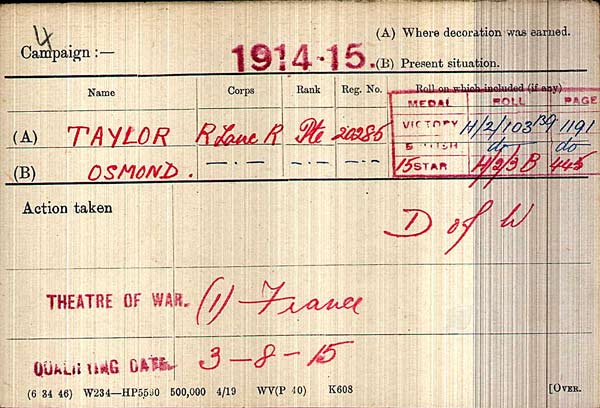 4
(A) Where decoration was earned.
Campaign :— 1914-15. (B) Present situation.
Name Corps Rank Reg. No. Roll on which included (if any)
MEDAL ROLL PAGE
(A) TAYLOR R Lanc R Pte 20285 VICTORY H/2/103 B9 1191
(B) OSMOND. —·— —·— —·— BRITISH do do
15 STAR H/2/3 B 445
Action taken
D of W
THEATRE OF WAR. (1) France
QUALIFYING DATE. 3-8-15
(6 34 46) W234—HP5590 500,000 4/19 WV(P 40) K608 [OVER.